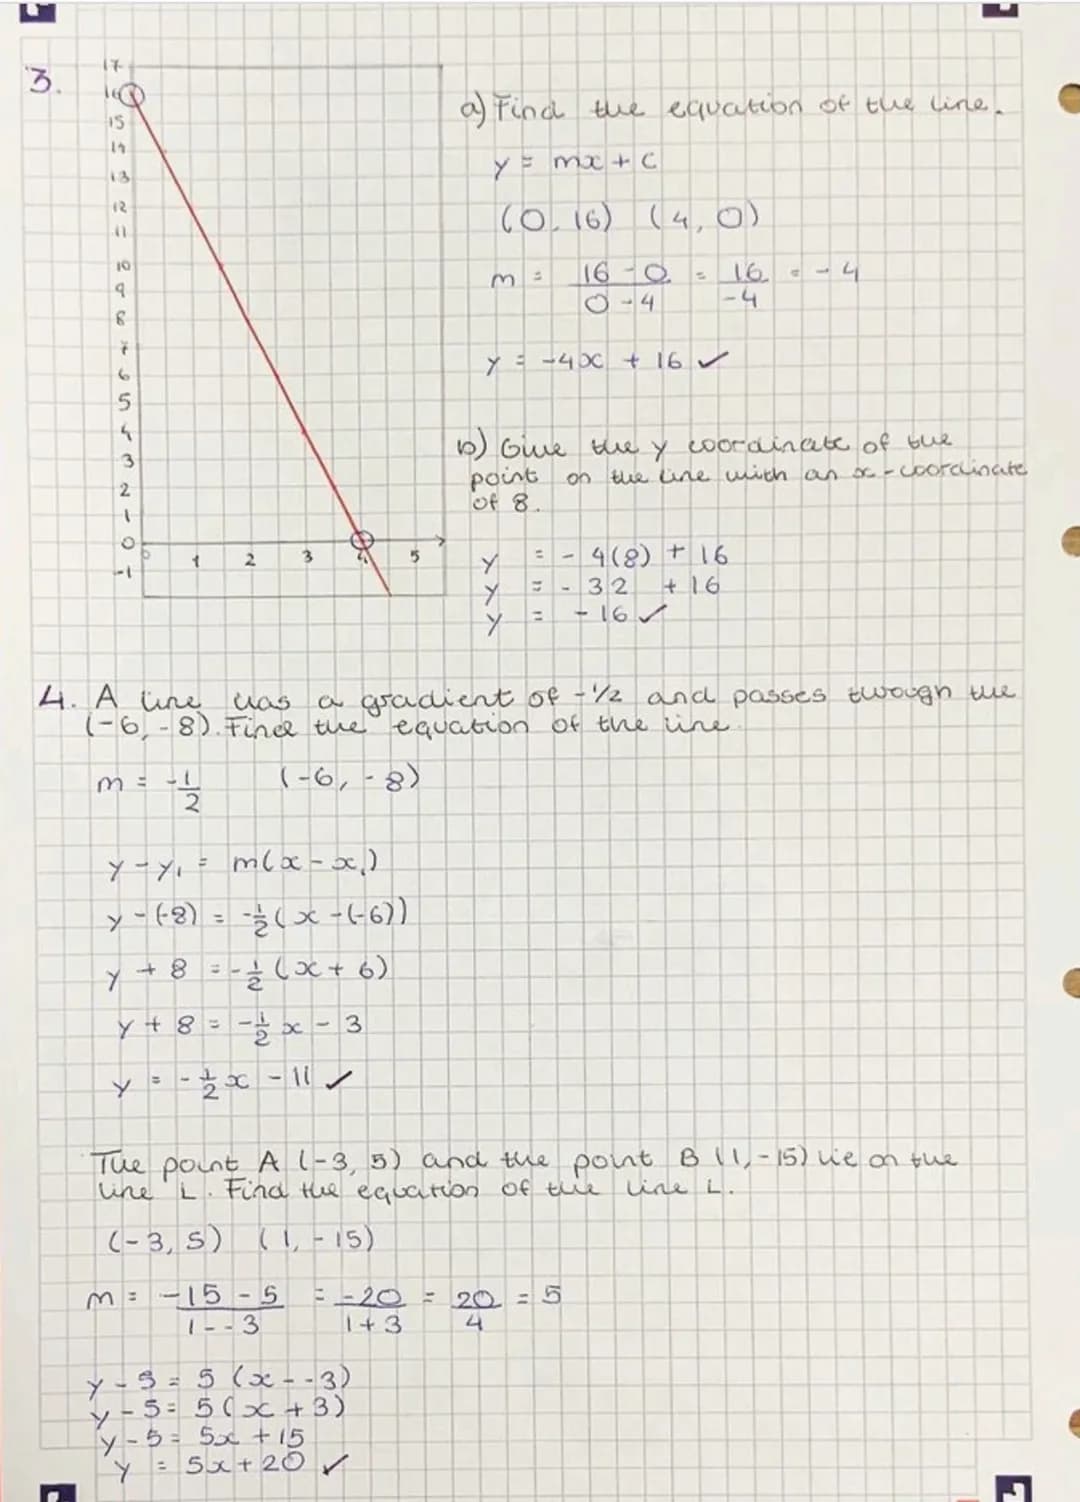 3.
17
16
15
14
13
12
11
10
9
8
7
6
5
4
3
2
1
0
-1
0 1 2 3 4 5
a) Find the equation of the line.
y = mx + c
(0, 16) (4, 0)
m = 16 - 0 / 0 - 4 = 16 / -4 = -4
y = -4x + 16 ✓
b) Give the y coordinate of the
point on the line with an x-coordinate
of 8.
y = - 4(8) + 16
y = - 32 + 16
y = - 16 ✓
4. A line has a gradient of -1/2 and passes through the
(-6, -8). Find the equation of the line.
m = -1/2 (-6, -8)
y - y₁ = m(x - x₁)
y - (-8) = -1/2 (x - (-6))
y + 8 = -1/2 (x + 6)
y + 8 = -1/2 x - 3
y = -1/2 x - 11 ✓
The point A (-3, 5) and the point B (1, -15) lie on the
line L. Find the equation of the line L.
(-3, 5) (1, -15)
m = -15 - 5 / 1 - - 3 = -20 / 1 + 3 = 20 / 4 = 5
y - 5 = 5 (x - - 3)
y - 5 = 5 (x + 3)
y - 5 = 5x + 15
y = 5x + 20 ✓